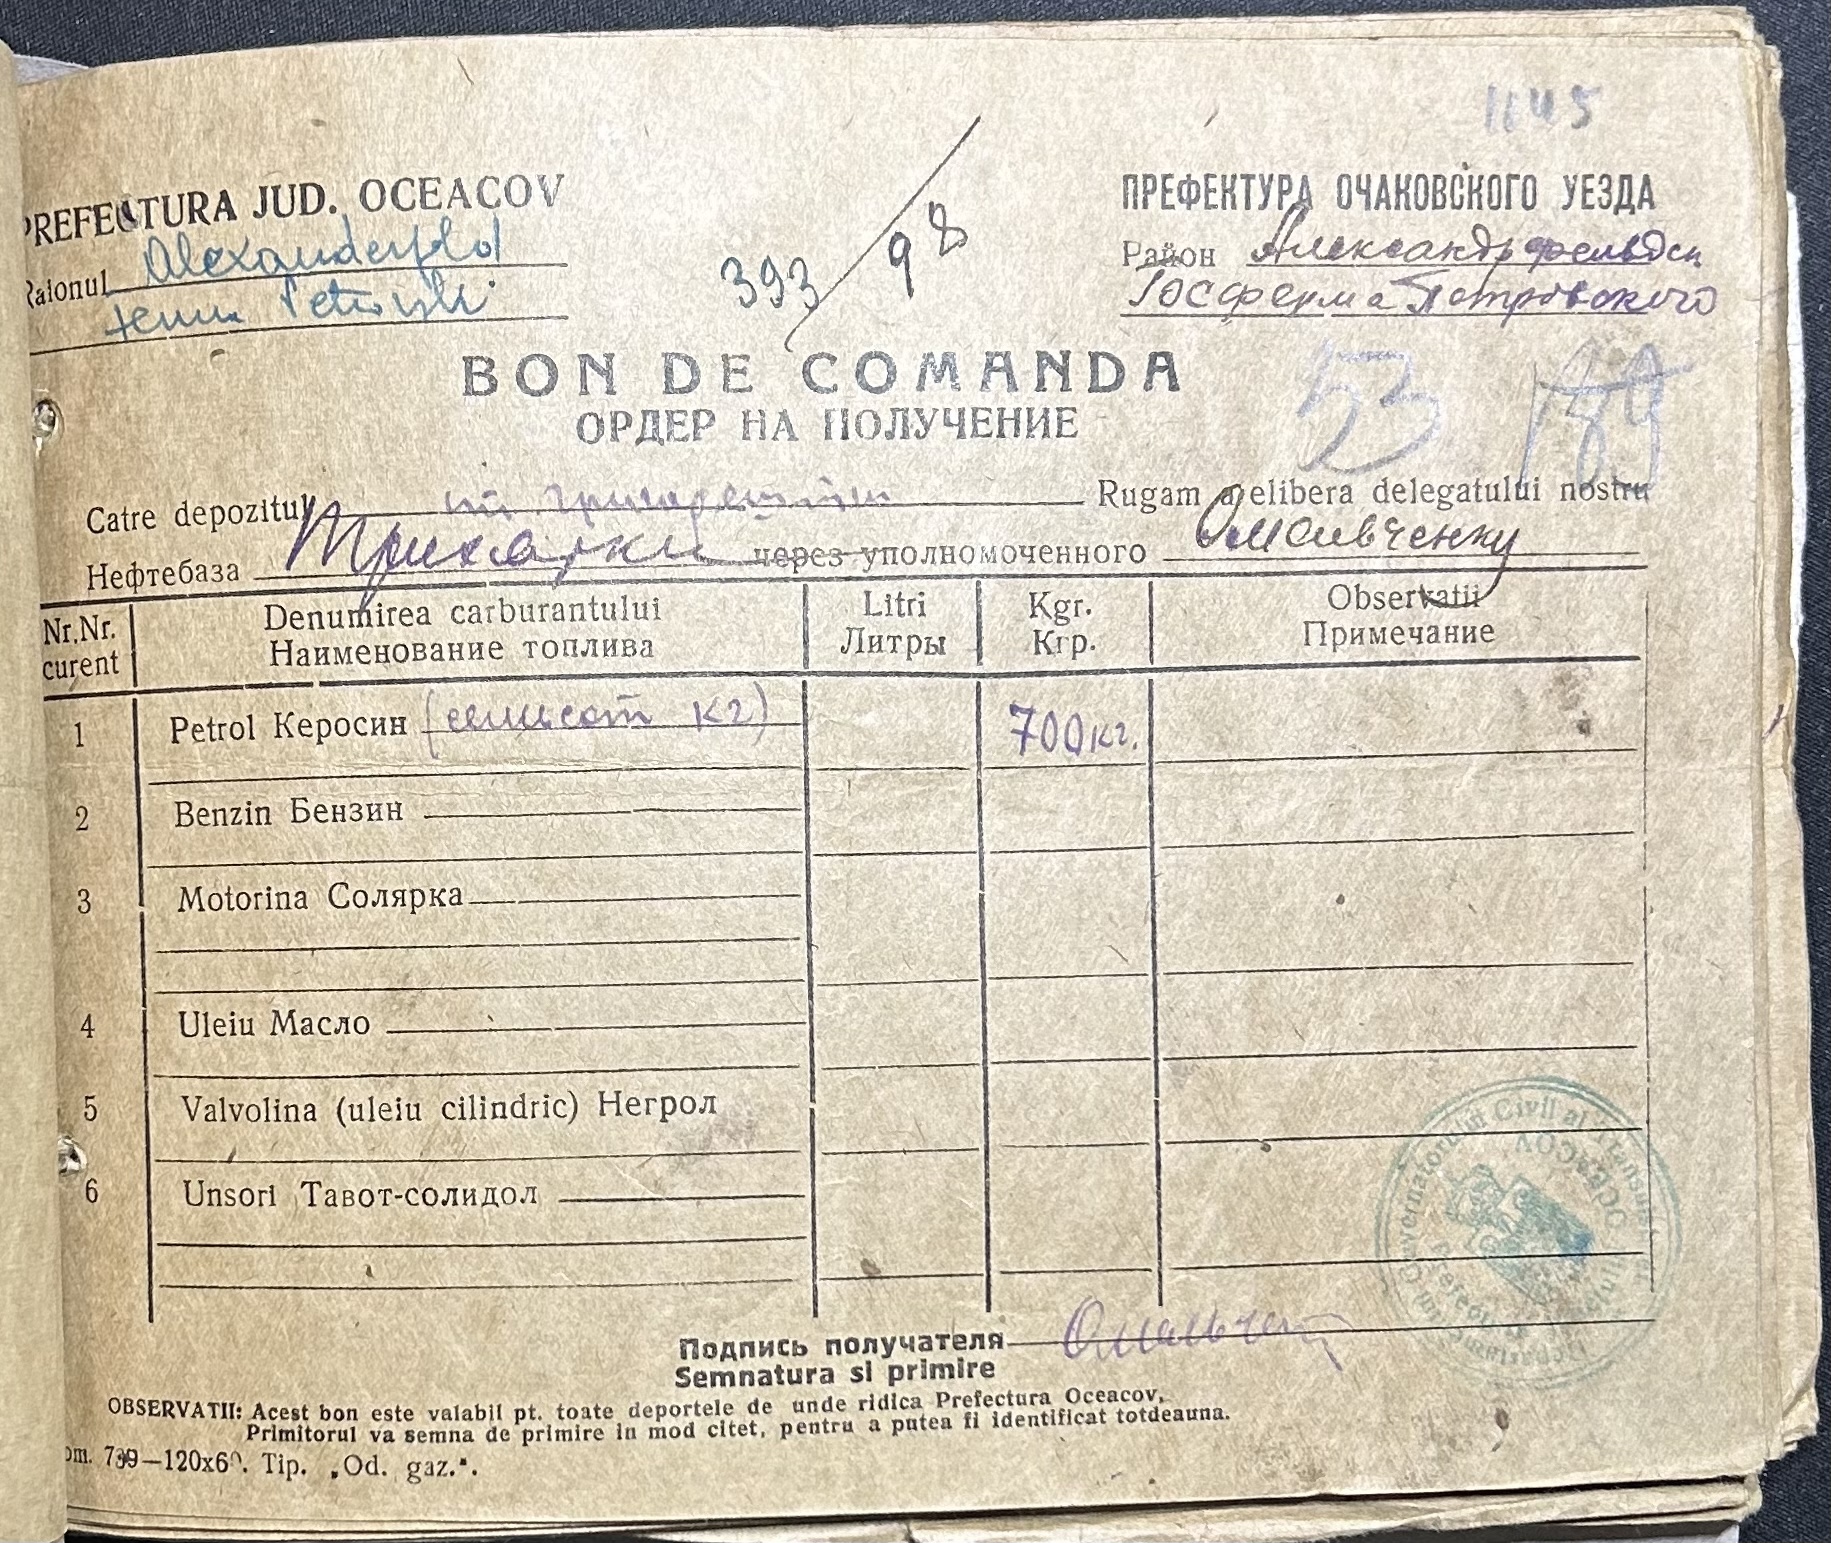 1145
PREFECTURA JUD. OCEACOV
Raionul Alexanderfeld
Petrovski
393/98
ПРЕФЕКТУРА ОЧАКОВСКОГО УЕЗДА
Район Александрфельдск
Госферма Петровского
BON DE COMANDA
ОРДЕР НА ПОЛУЧЕНИЕ
53
Catre depozitul Rugam a elibera delegatului nostru
Нефтебаза Трихатки через уполномоченного Омельченку
Nr.Nr. curent Denumirea carburantului Litri Kgr. Observatii
Наименование топлива Литры Кгр. Примечание
1 Petrol Керосин (семьсот кг) 700 кг.
2 Benzin Бензин
3 Motorina Солярка
4 Uleiu Масло
5 Valvolina (uleiu cilindric) Негрол
6 Unsori Тавот-солидол
Guvernatorul Civil al Transnistriei
Prefectura Județului Oceacov
Подпись получателя Омельченко
Semnatura si primire
OBSERVATII: Acest bon este valabil pt. toate deportele de unde ridica Prefectura Oceacov.
Primitorul va semna de primire in mod citet, pentru a putea fi identificat totdeauna.
om. 739—120x60. Tip. „Od. gaz.".